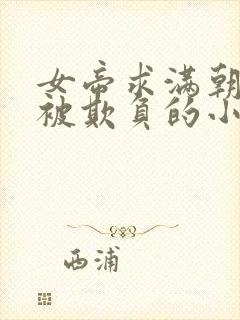 女帝求满朝
被欺负的小
西浦